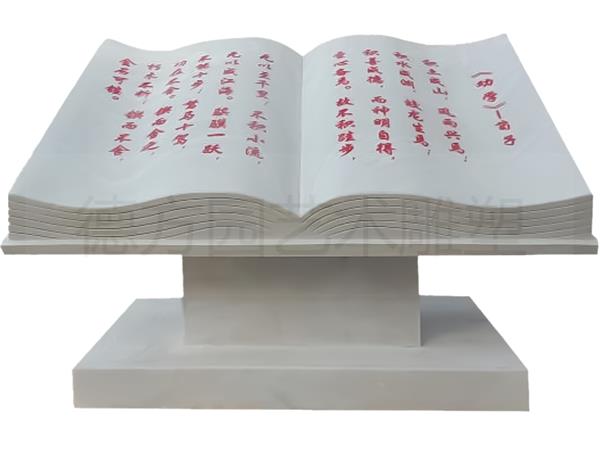 《劝学》—荀子
积土成山，风雨兴焉；
积水成渊，蛟龙生焉；
积善成德，而神明自得，
圣心备焉。故不积跬步，
无以至千里；不积小流，
无以成江海。骐骥一跃，
不能十步；驽马十驾，
功在不舍。锲而舍之，
朽木不折；锲而不舍，
金石可镂。
德方园艺术雕塑